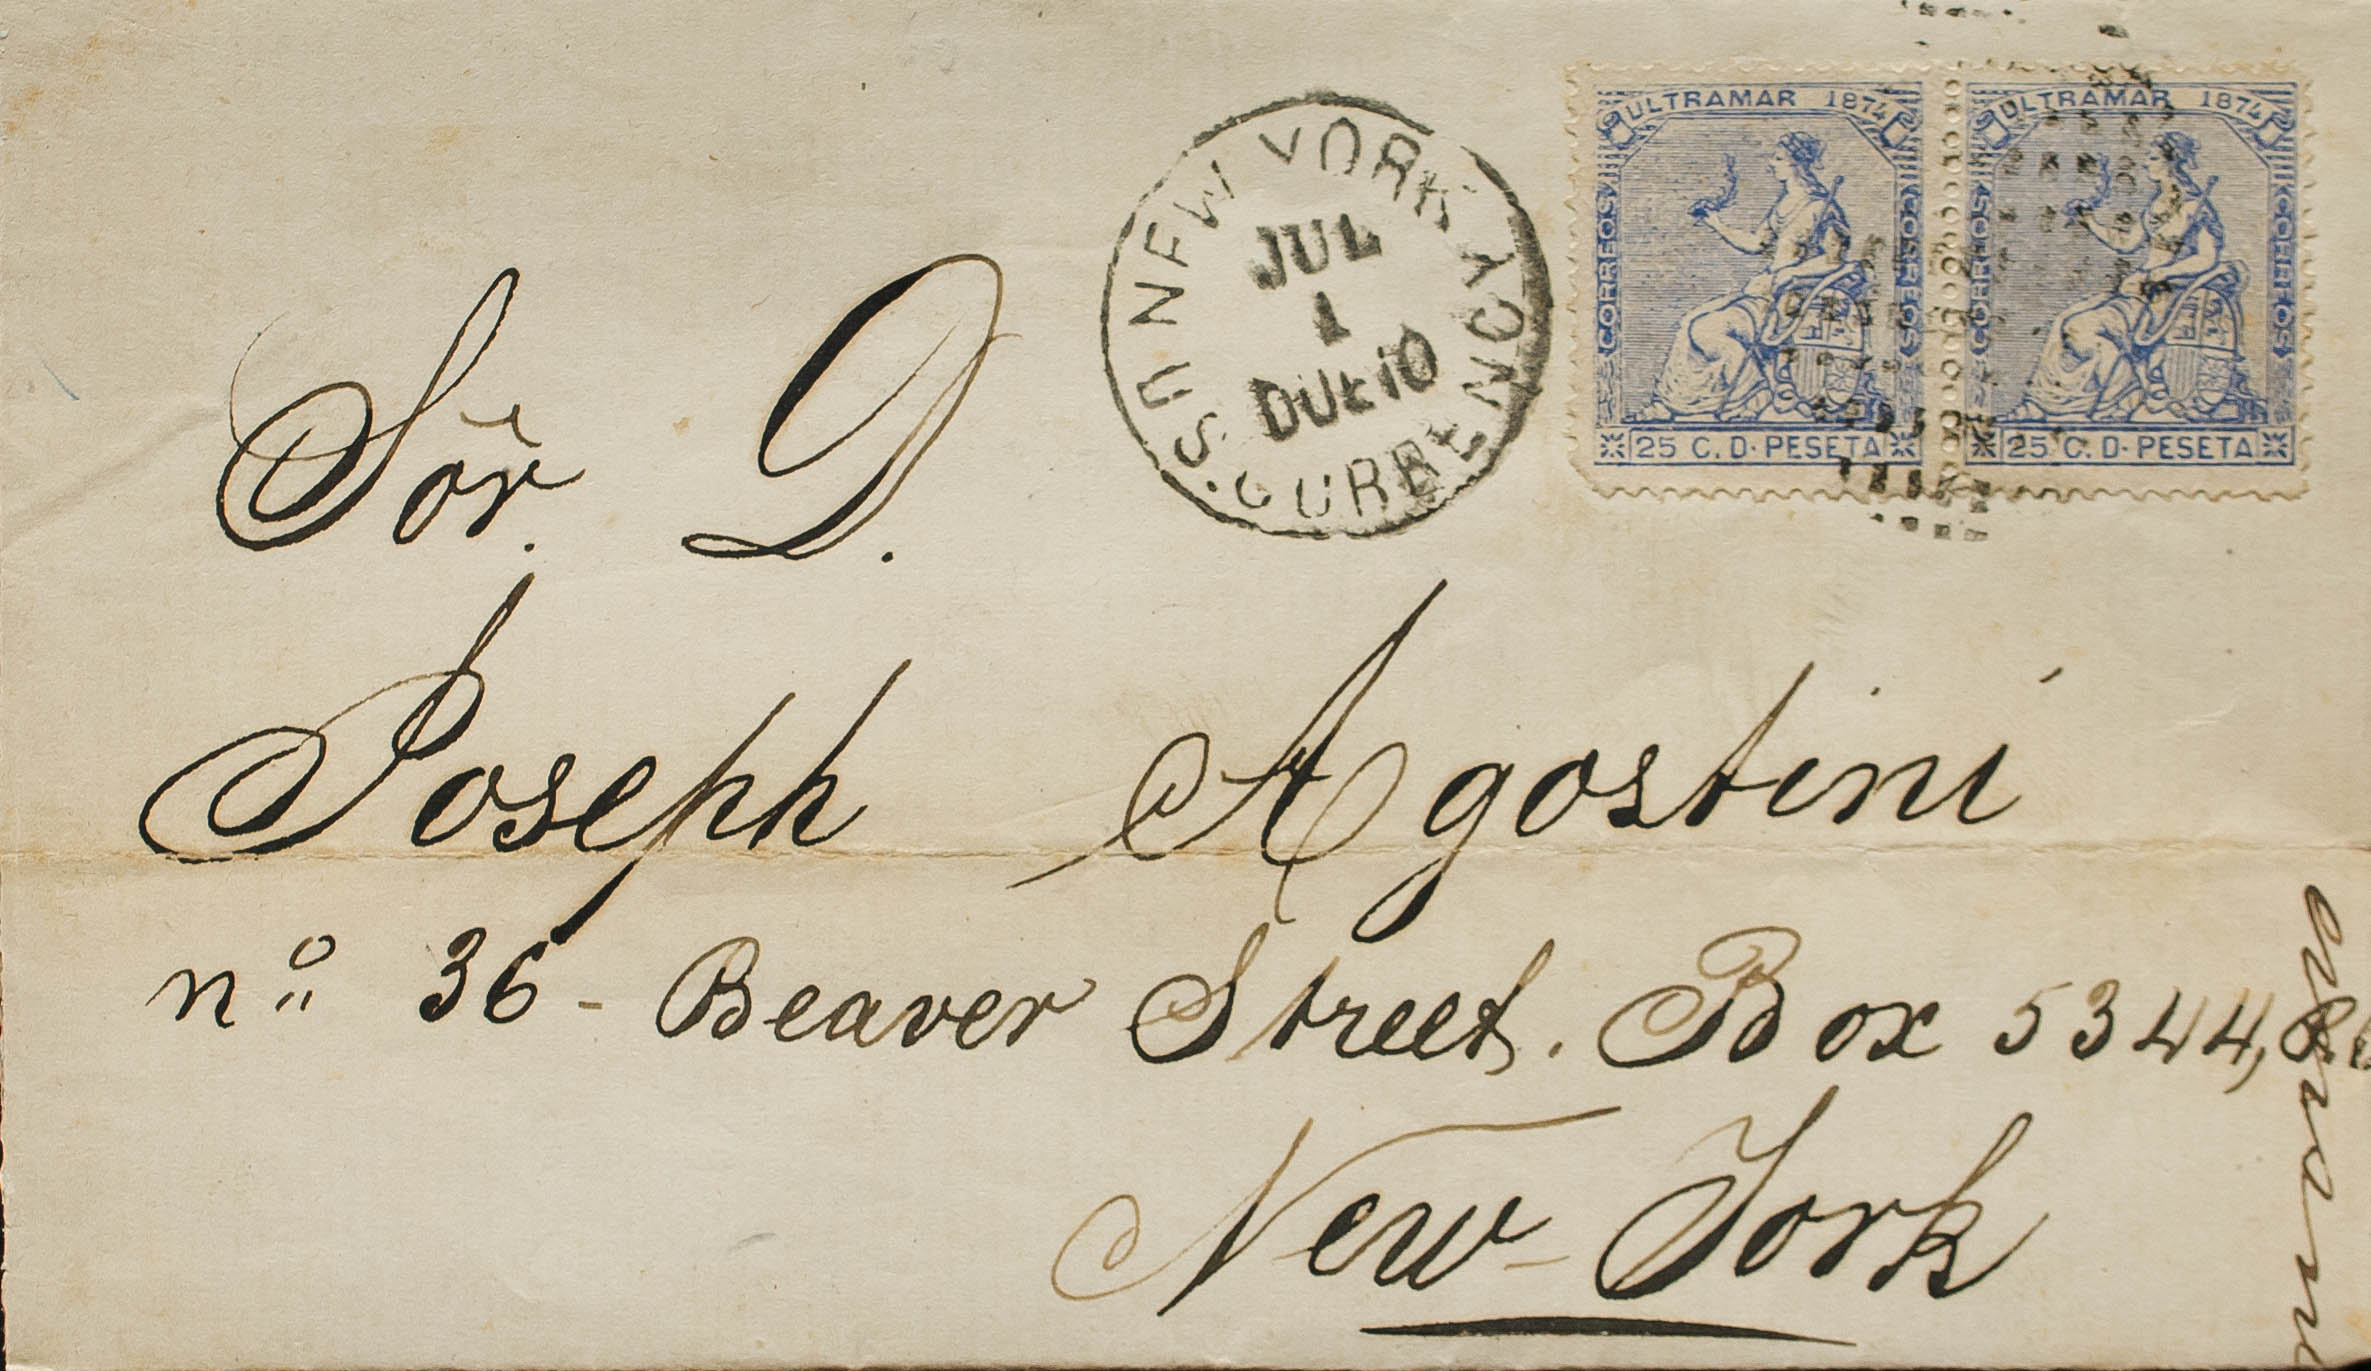 ULTRAMAR 1874
CORREOS
CORREOS
25 C. D. PESETA
ULTRAMAR 1874
CORREOS
CORREOS
25 C. D. PESETA
NEW YORK
JUL
1
DUE 10
U.S. CURRENCY
Sor. D.
Joseph Agostini
nº 36 - Beaver Street. Box 5344,
New-York